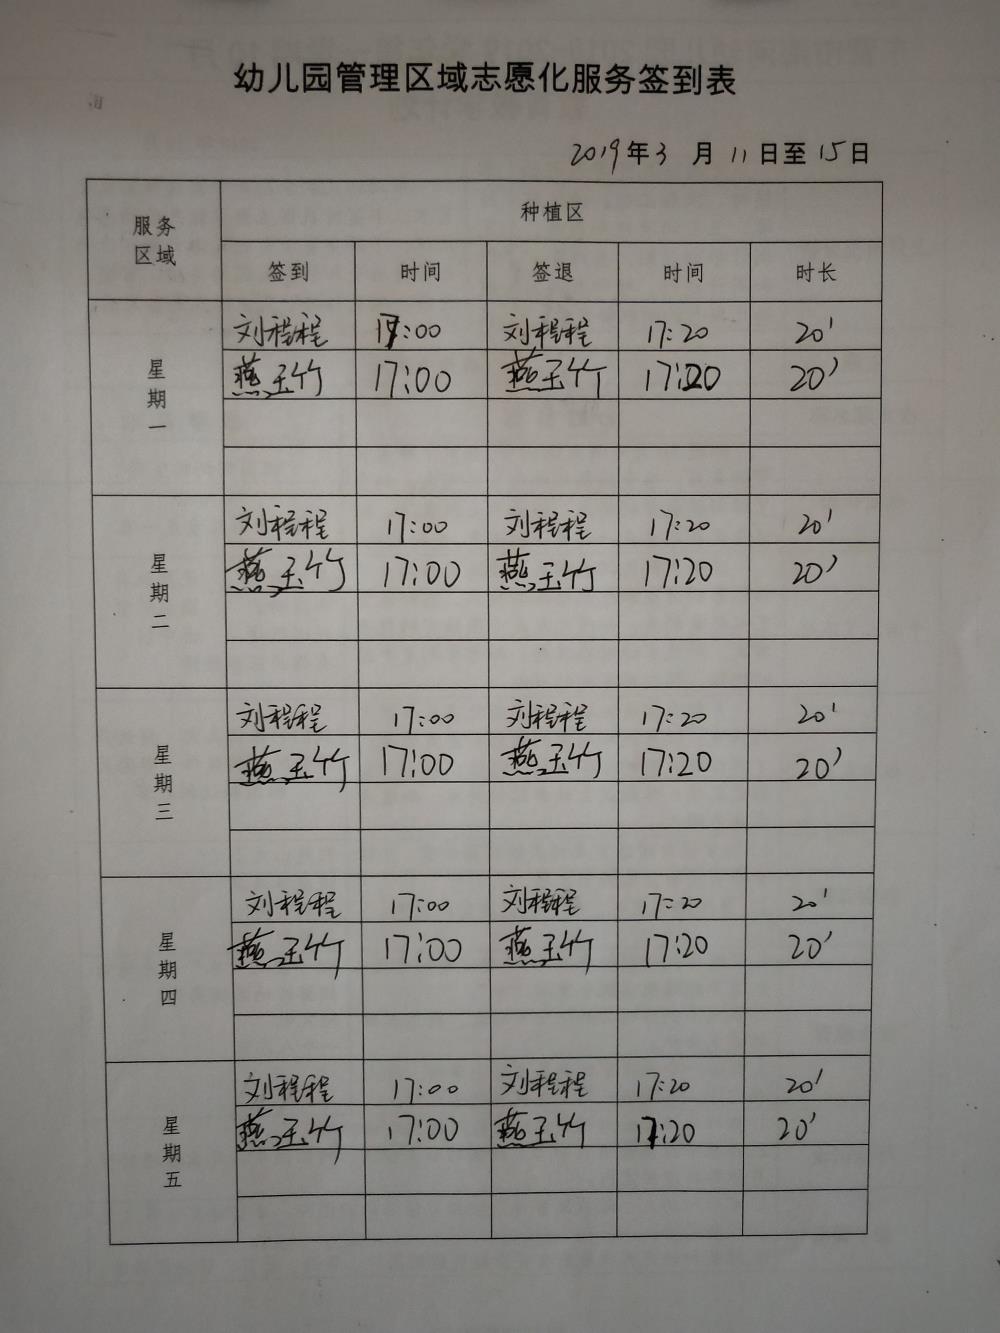 幼儿园管理区域志愿化服务签到表
2019年3月11日至15日
服务区域 种植区
签到 时间 签退 时间 时长
星期一
刘程程 17:00 刘程程 17:20 20'
燕玉竹 17:00 燕玉竹 17:20 20'
星期二
刘程程 17:00 刘程程 17:20 20'
燕玉竹 17:00 燕玉竹 17:20 20'
星期三
刘程程 17:00 刘程程 17:20 20'
燕玉竹 17:00 燕玉竹 17:20 20'
星期四
刘程程 17:00 刘程程 17:20 20'
燕玉竹 17:00 燕玉竹 17:20 20'
星期五
刘程程 17:00 刘程程 17:20 20'
燕玉竹 17:00 燕玉竹 17:20 20'